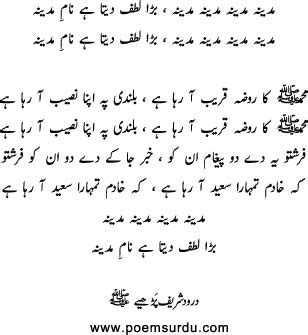 مدینہ مدینہ مدینہ مدینہ ، بڑا لطف دیتا ہے نامِ مدینہ
مدینہ مدینہ مدینہ مدینہ ، بڑا لطف دیتا ہے نامِ مدینہ
محمدﷺ کا روضہ قریب آ رہا ہے ، بلندی پہ اپنا نصیب آ رہا ہے
محمدﷺ کا روضہ قریب آ رہا ہے ، بلندی پہ اپنا نصیب آ رہا ہے
فرشتو یہ دے دو پیغام ان کو ، خبر جا کے دے دو ان کو فرشتو
کہ خادم تمہارا سعید آ رہا ہے ، کہ خادم تمہارا سعید آ رہا ہے
مدینہ مدینہ مدینہ مدینہ
بڑا لطف دیتا ہے نامِ مدینہ
درود شریف پڑھیے ﷺ
www.poemsurdu.com